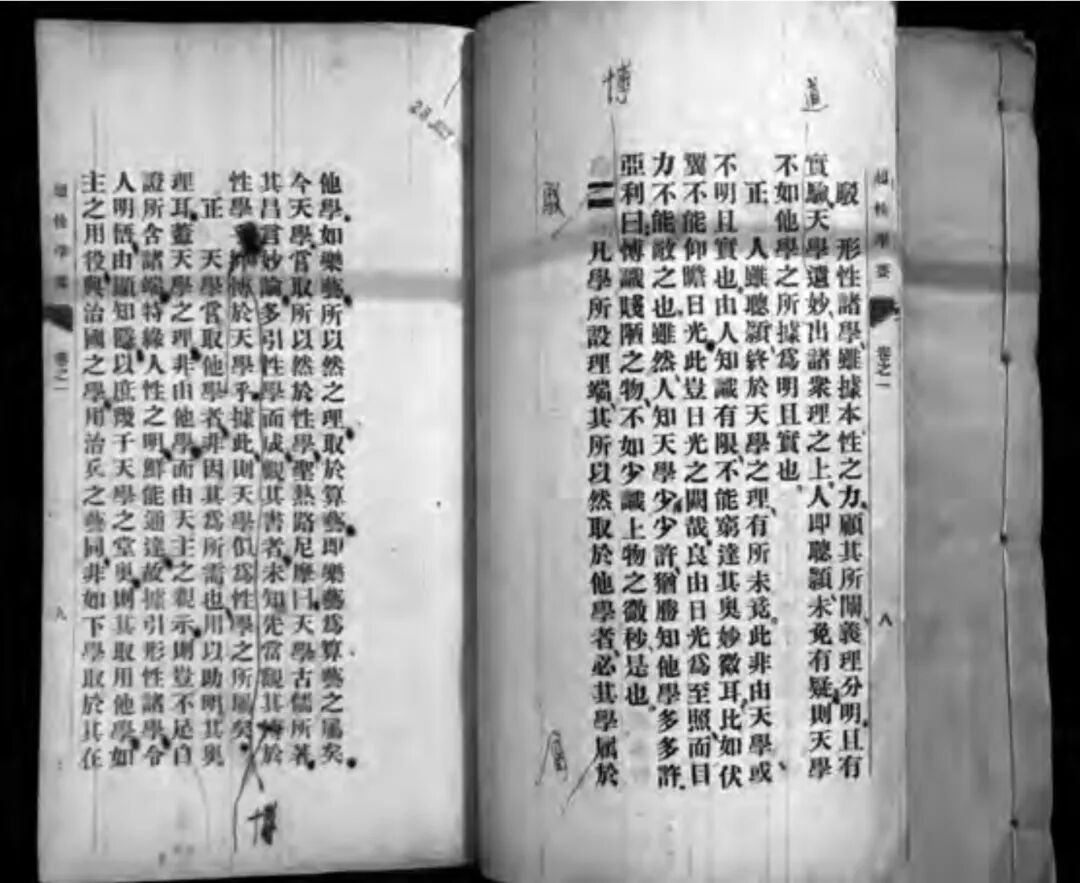 道
博
駁 形性諸學雖據本性之力顧其所闡義理分明且有
實驗天學遺妙出諸衆理之上人即聰頴未免有疑則天學
不如他學之所據爲明且實也
正 人雖聰頴終於天學之理有所未竟此非由天學或
不明且實也由人知識有限不能窮達其奧妙微耳比如伏
翼不能仰瞻日光此豈日光之闕哉良由日光爲至照而目
力不能敵之也雖然人知天學少少許猶勝知他學多多許
亞利曰博識賤陋之物不如少識上物之微秒是也
二 凡學所設理端其所以然取於他學者必其學屬於
卷之一
八
他學如樂藝所以然之理取於算藝即樂藝爲算藝之屬矣
今天學嘗取所以然於性學聖熱路尼摩曰天學古儒所著
其昌言妙論多引性學而成觀其書者未知先當觀其於
性學 於天學乎據此則天學似爲性學之所屬矣
正 天學嘗取他學者非因其爲所需也用以助明其奧
理耳蓋天學之理非由他學而由天主之觀示則豈不足自
證所含諸端特緣人性之明鮮能通達故據引形性諸學令
人明悟由顯知隱以庶幾于天學之堂奧則其取用他學如
主之用役與治國之學用治兵之藝同非如下學取於其在
卷之一
八
博